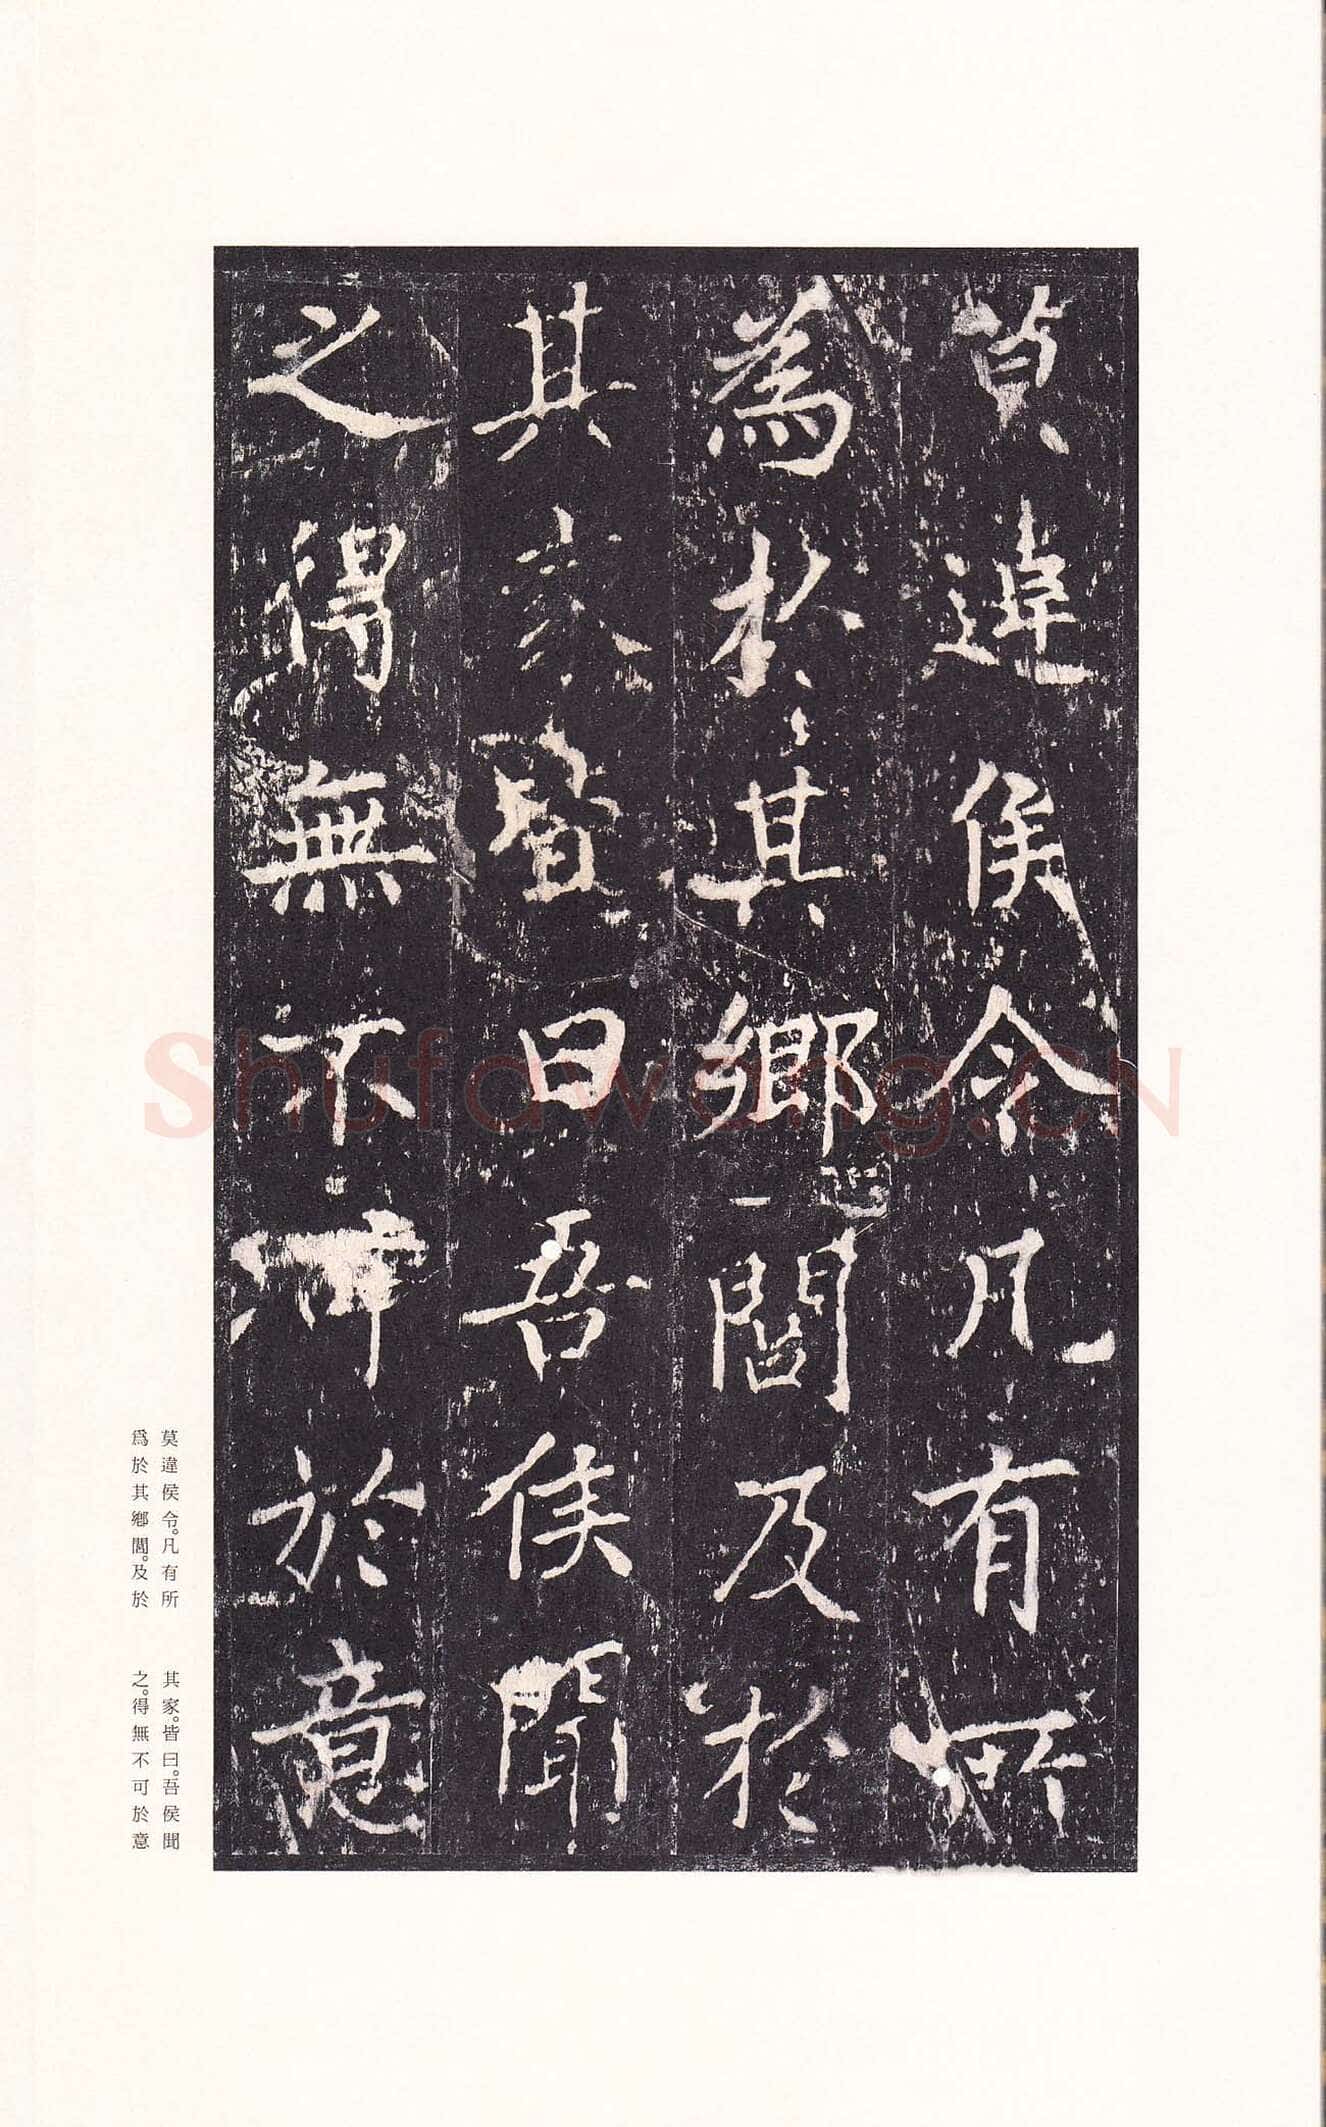 莫違侯令凡有所
為於其鄉閭及於
其家皆曰吾侯聞
之得無不可於意
莫違侯令。凡有所
爲於其鄉閭。及於
其家。皆曰。吾侯聞
之。得無不可於意
Shufawang.CN